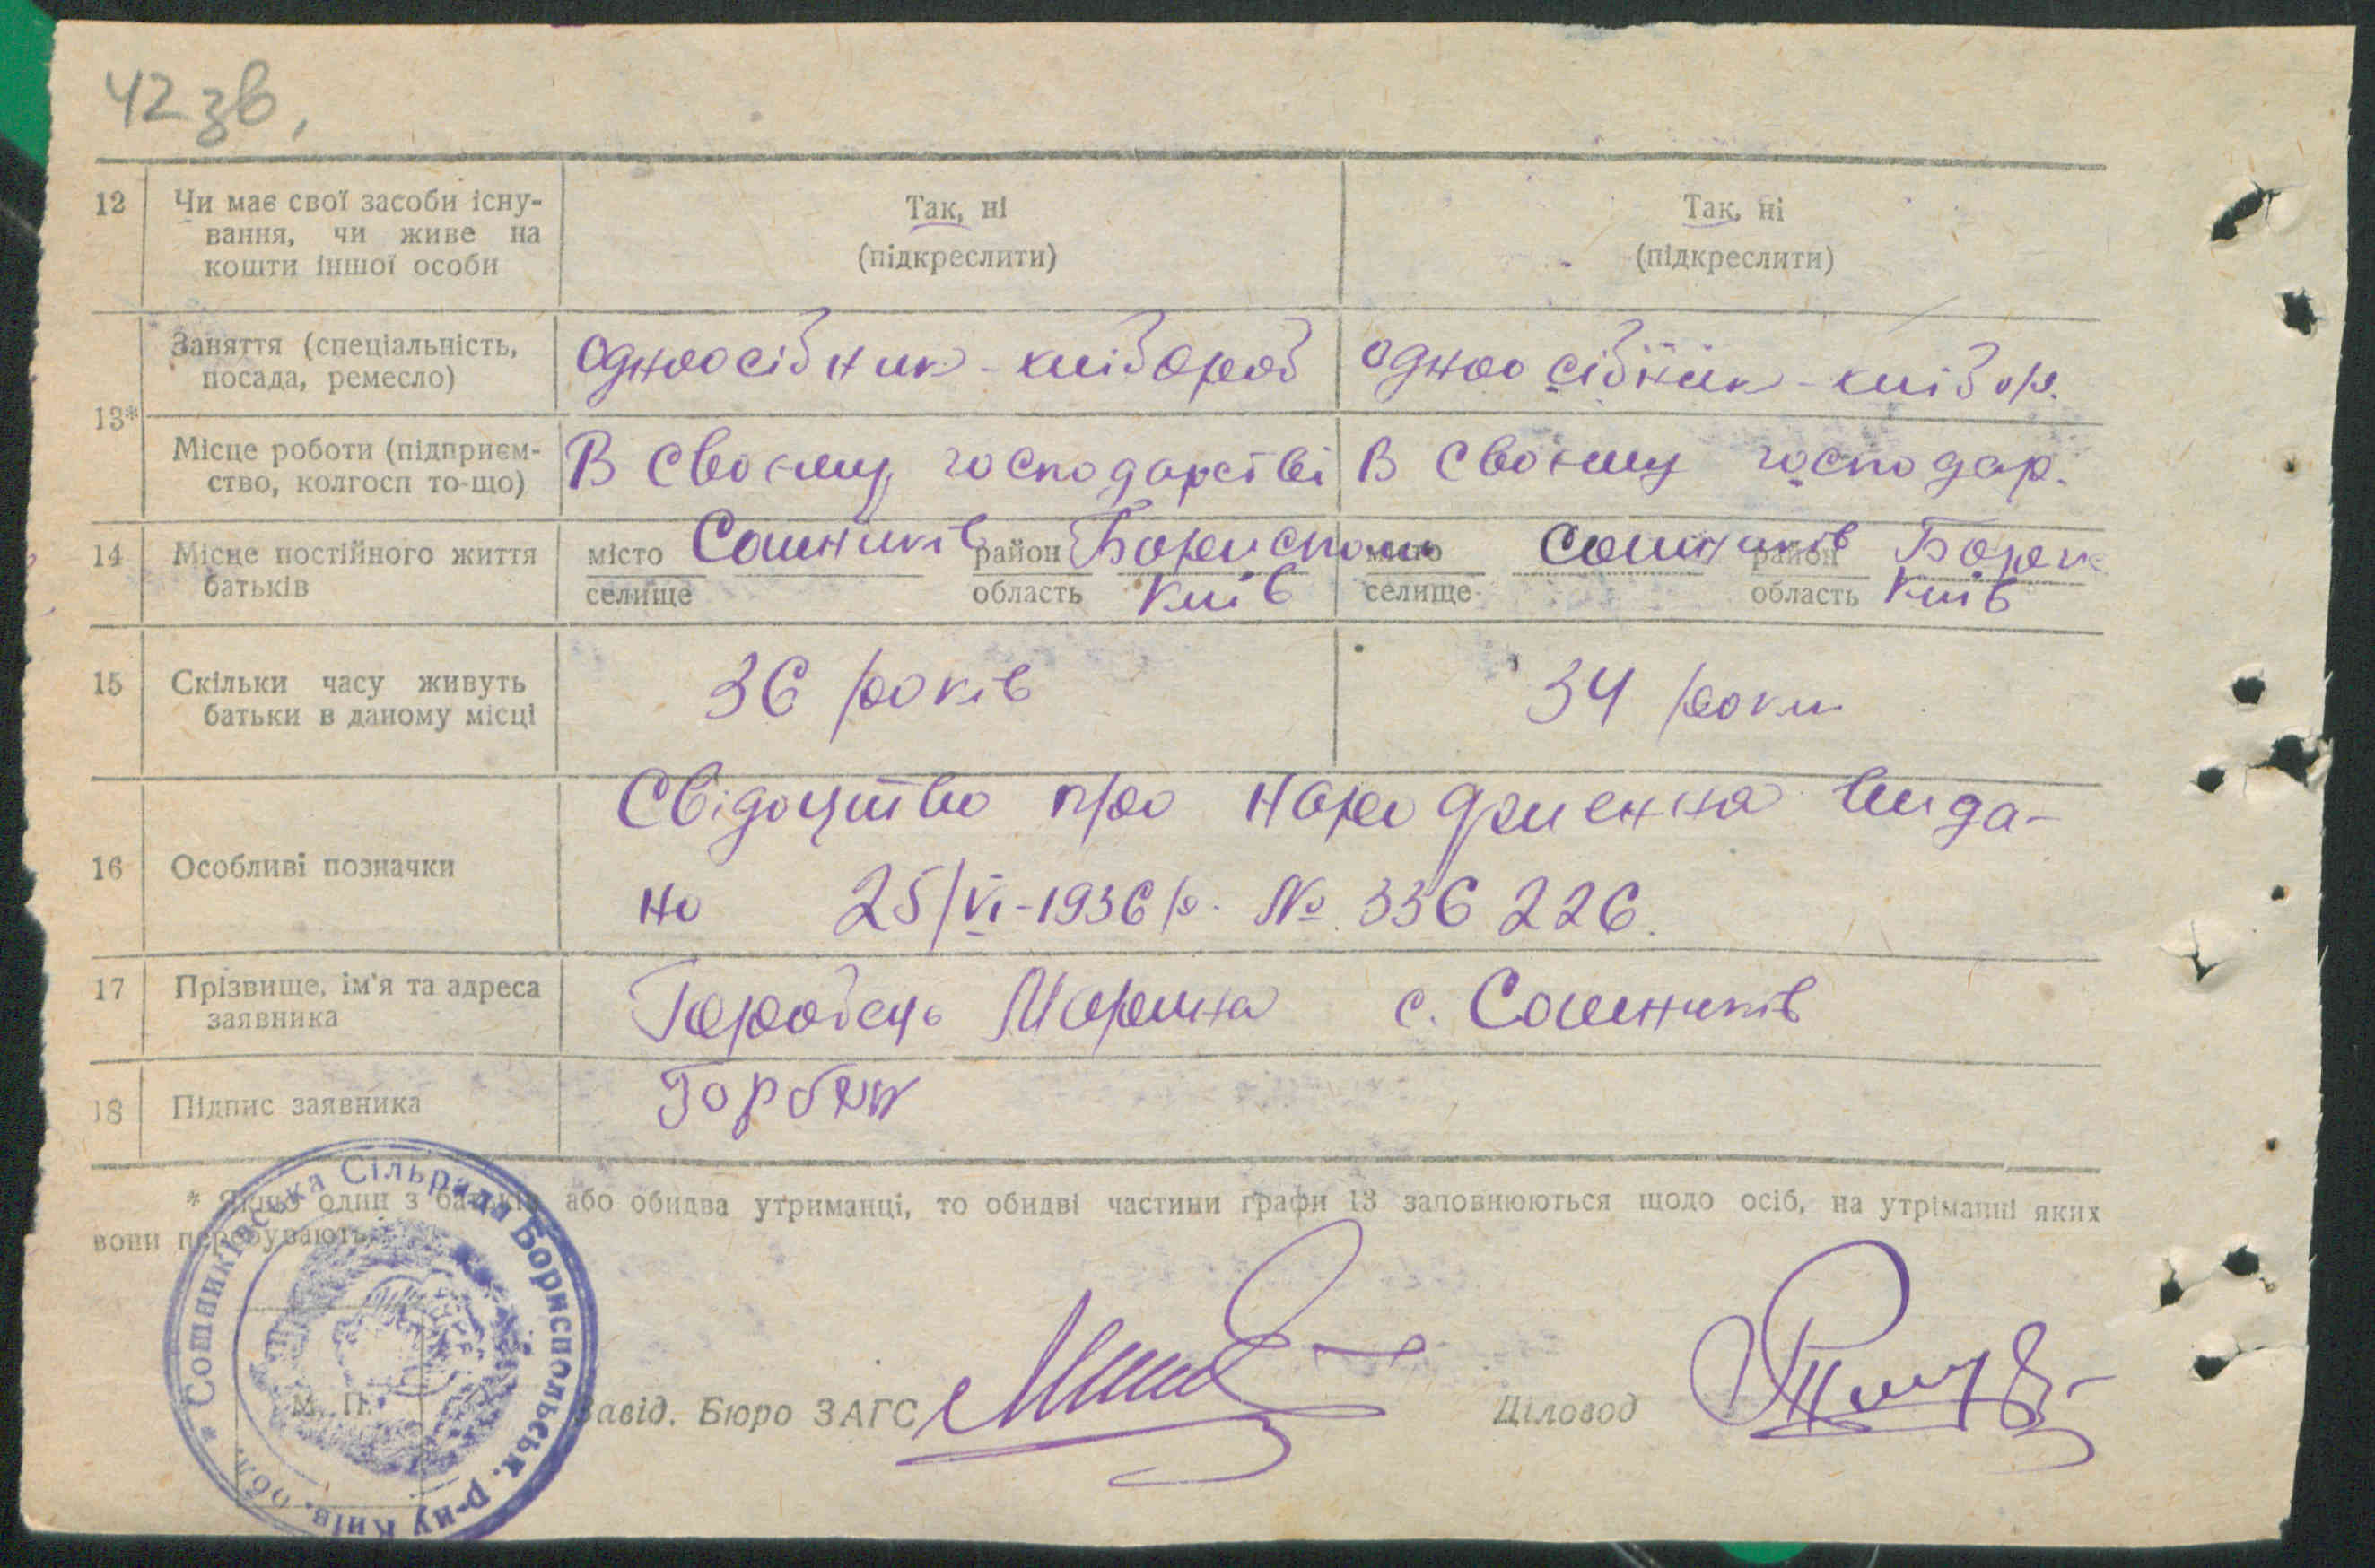 42 зв,
12 Чи має свої засоби існу-
вання, чи живе на
кошти іншої особи
Так, ні
(підкреслити)
Так, ні
(підкреслити)
13*
Заняття (спеціальність,
посада, ремесло)
одноосібник - хлібороб
одноосібник - хлібор.
Місце роботи (підприєм-
ство, колгосп то-що)
В своєму господарстві
В своєму господар.
14 Місце постійного життя
батьків
місто Сошників район Бориспіль
селище область Київ
місто Сошників район Борис
селище область Київ
15 Скільки часу живуть
батьки в даному місці
36 років
34 роки
16 Особливі позначки
Свідоцтво про народження вида-
но 25/VI-1936 р. № 336 226.
17 Прізвище, ім'я та адреса
заявника
Горобець Марина с. Сошників
18 Підпис заявника
* Якщо один з батьків, або обидва утриманці, то обидві частини графи 13 заповнюються щодо осіб, на утріманні яких
вони перебувають.
* Сошниківська Сільрада Бориспольськ. р-ну Київ. обл.
М. П.
Завід. Бюро ЗАГС
Діловод